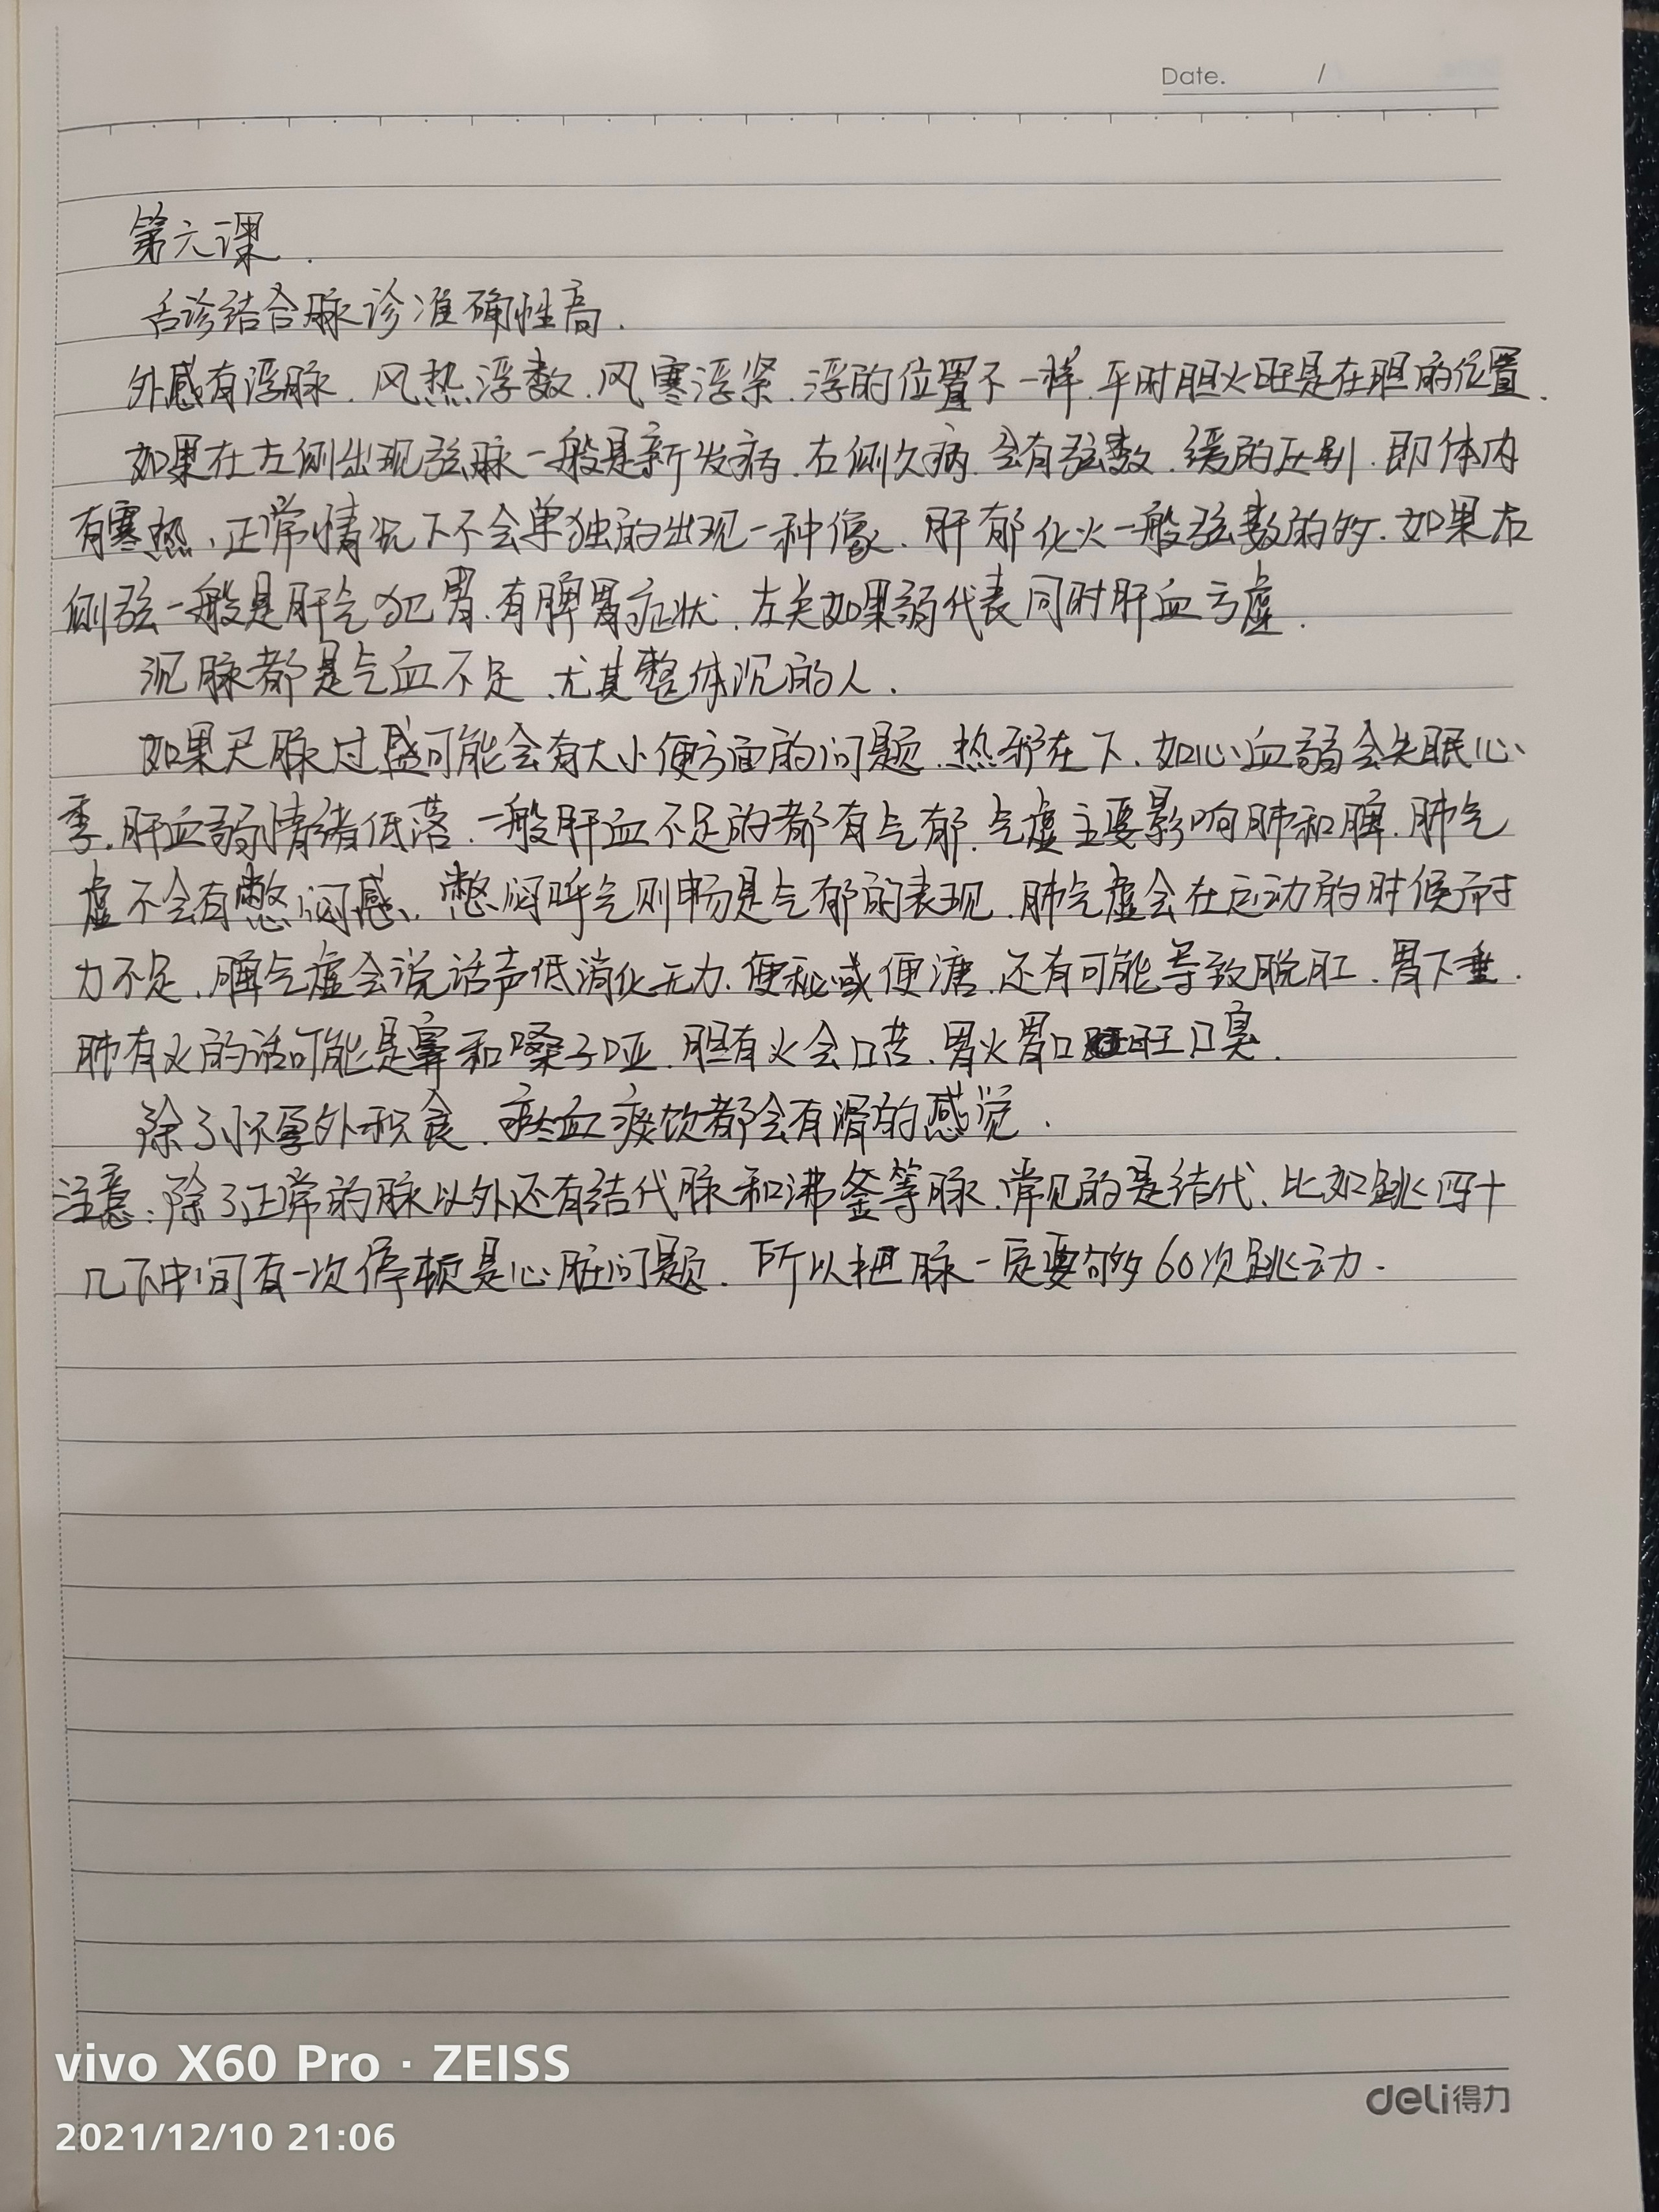 Date. /
第六课.
舌诊结合脉诊准确性高.
外感有浮脉.风热浮数.风寒浮紧.浮的位置不一样.平时胆火旺是在胆的位置.
如果在左侧出现弦脉一般是新发病.右侧久病.会有弦数.缓的区别.即体内
有寒热、正常情况下不会单独的出现一种像.肝郁化火一般弦数的多.如果右
侧弦一般是肝气犯胃.有脾胃症状.左关如果弱代表同时肝血亏虚.
沉脉都是气血不足、尤其整体沉的人.
如果尺脉过盛可能会有大小便方面的问题.热邪在下.如心血弱会失眠心
季.肝血弱情绪低落.一般肝血不足的都有气郁.气虚主要影响肺和脾.肺气
虚不会有憋闷感.憋闷呼气则畅是气郁的表现.肺气虚会在运动的时候耐
力不足.脾气虚会说话声低消化无力.便秘或便溏.还有可能导致脱肛.胃下垂.
肺有火的话可能是鼻和嗓子哑.胆有火会口苦.胃火胃口旺口臭.
除了怀孕外积食.瘀血痰饮都会有滑的感觉.
注意:除了正常的脉以外还有结代脉和沸釜等脉.常见的是结代.比如跳四十
几下中间有一次停顿是心脏问题.所以把脉一定要够60次跳动.
vivo X60 Pro · ZEISS
2021/12/10 21:06
deli得力